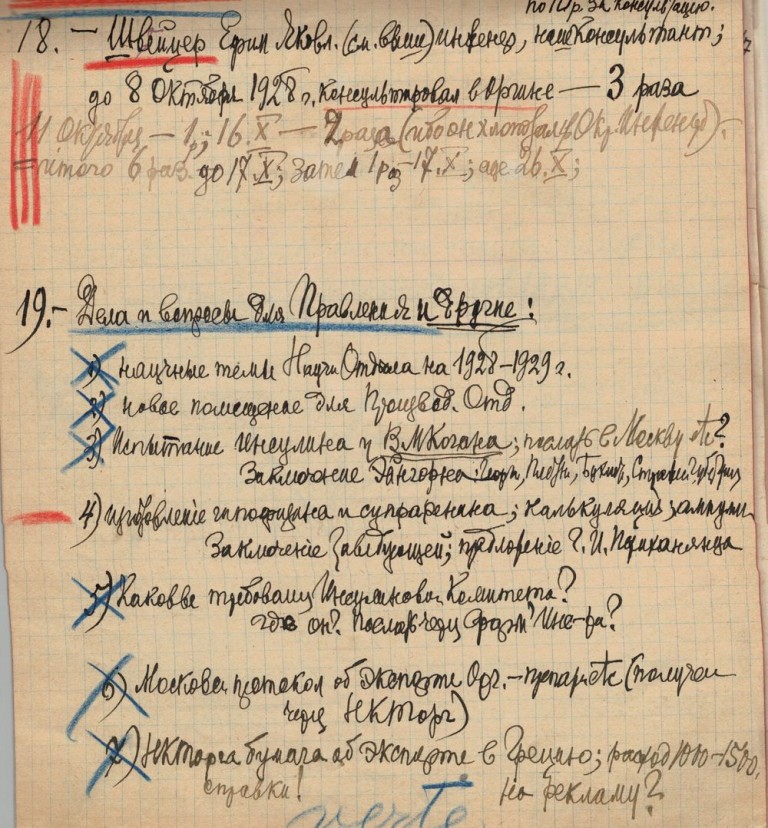 по 15 р. за консультацию.
18. – Швейцер Ефим Яковл. (см. выш) инженер, наш консультант;
до 8 Октября 1928 г. консультировал в Оргине — 3 раза
11 Октября – 1 р.; 16.X — 2 раза (ибо он хлопотал у Окр. Инженер). –
= итого 6 раз. до 17.X; затем 1 раз – 17.X; 26.X;
19. – Дела и вопросы для Правления и другие:
1) научные темы Научн. Отдела на 1928–1929 г.
2) новое помещение для Производ. Отд.
3) Испытание инсулина у В.М. Когана; послать в Москву etc?
Заключение
4) изготовление гипофизина и супраренина; калькуляция, ампулы
Заключение Заведующей; предложение Г. И.
5) Каковы требования Инсулинового Комитета?
где он? Послать через Фарм? Ин-та?
6) Москов. протокол об экспорте Орг.-препар. etc (получен
через НКТорг)
7) НКТорга бумага об экспорте в Грецию; расход 1000–1500,
справки! на рекламу?
verte